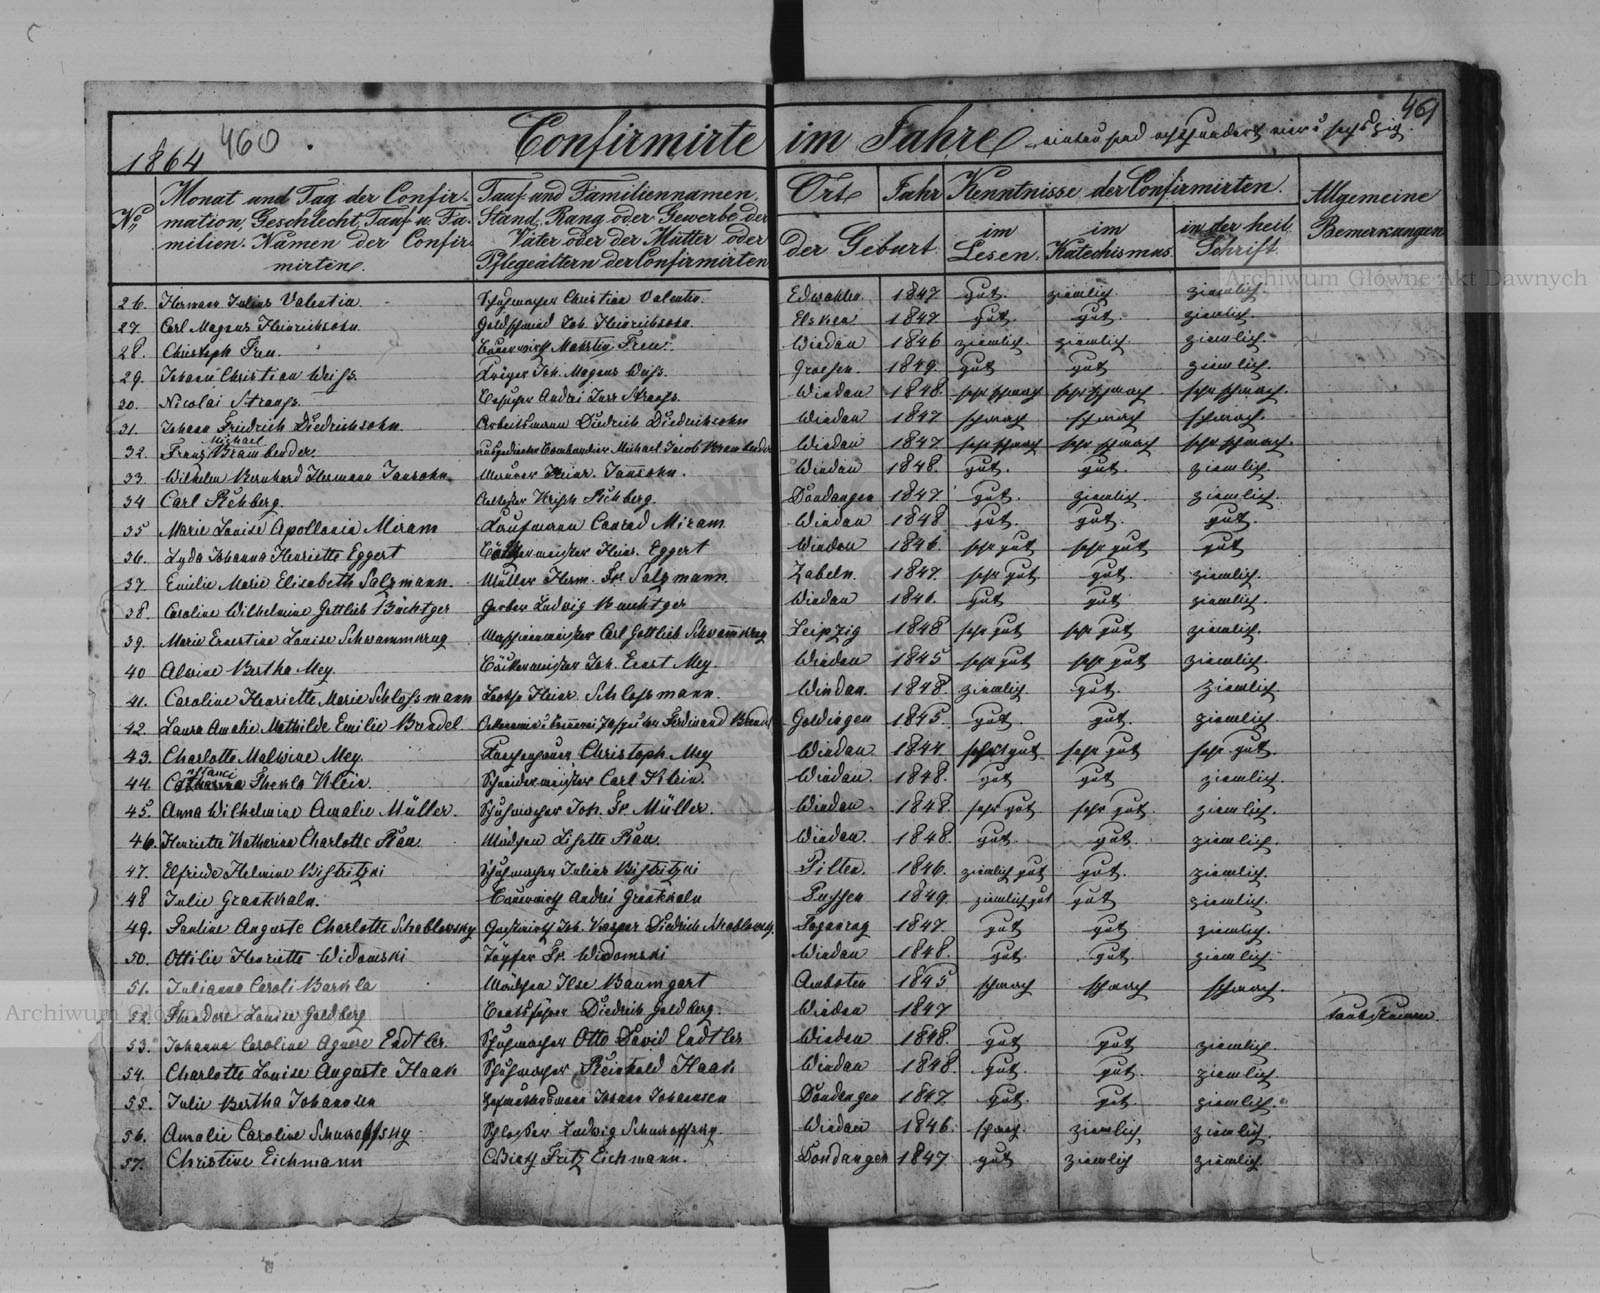 1864 460 Confirmirte im Jahre eintausend achthundert vier u. sechszig. 461
No. Monat und Tag der Confirmation, Geschlecht, Tauf u. Familien-Namen der Confirmirten.
Tauf- und Familiennamen, Stand, Rang oder Gewerbe der Väter oder der Mütter oder Pflegeältern der Confirmirten
Ort Jahr der Geburt
Kenntnisse der Confirmirten.
im Lesen. im Katechismus. in der heil. Schrift.
Allgemeine Bemerkungen
26. Herman Julius Valentin Schuhmacher Christian Valentin. Edwahlen. 1847 gut. ziemlich. ziemlich.
27. Carl Magnus Heinrichsohn Goldschmied Joh. Heinrichsohn. 1847 gut. gut. ziemlich.
28. Christoph Freu. Freu. Windau 1846 ziemlich. ziemlich. ziemlich.
29. Johann Christian Weiss. Krüger Joh. Magnus Weiss. 1849. gut gut ziemlich.
30. Nicolai Strauss. Andrei Strauss. Windau 1848. sehr schwach sehr schwach sehr schwach.
31. Johann Friedrich Diedrichsohn Arbeitsmann Diedrich Diedrichsohn Windau 1847 schwach schwach schwach.
32. Franz Michael Brambender. Michael Jacob Brambender Windau 1847 sehr schwach sehr schwach sehr schwach.
33 Wilhelm Bernhard Herman Jansohn Maurer Heinr. Jansohn. Windau 1848. gut. gut. ziemlich
34 Carl Richberg. Krish Richberg. Dondangen 1847 gut. ziemlich. ziemlich.
35 Marie Louise Apollonia Miram Kaufmann Conrad Miram Windau 1848 gut. gut. gut.
36. Lyda Johanna Henriette Eggert Heinr. Eggert Windau 1846. sehr gut sehr gut gut
37. Emilie Marie Elisabeth Salzmann. Müller Herm. Fr. Salzmann. Zabeln. 1847. sehr gut gut ziemlich.
38. Caroline Wilhelmine Gottlieb Büchtger Gerber Ludwig Buchtger Windau 1846. gut gut ziemlich.
39. Marie Ernestine Louise Schwammkrug Carl Gottlieb Schwammkrug Leipzig 1848 sehr gut sehr gut ziemlich.
40 Alwine Bertha Mey. Böttchermeister Joh. Ernst Mey. Windau 1845 sehr gut sehr gut ziemlich.
41. Caroline Henriette Marie Schlossmann Lootse Heinr. Schlossmann. Windau. 1848. ziemlich gut. ziemlich.
42. Laura Amalie Mathilde Emilie Brandel Ferdinand Brandel Goldingen 1845. gut. gut. ziemlich.
43. Charlotte Malwine Mey. Christoph Mey Windau 1844. sehr gut sehr gut sehr gut.
44. Thekla Klein. Schneidermeister Carl Klein. Windau. 1848. gut gut ziemlich.
45. Anna Wilhelmine Amalie Müller. Schuhmacher Joh. Fr. Müller. Windau 1848. sehr gut sehr gut ziemlich.
46. Henriette Katharina Charlotte Rau. Mädchen Lisette Rau. Windau. 1848. gut. gut. ziemlich.
47. Elfriede Helmine Bistritzki Schuhmacher Julius Bistritzki Pilten. 1846. ziemlich gut gut. ziemlich.
48 Julie Graskaln. Andrei Graskaln Pussen 1849. ziemlich gut gut ziemlich.
49. Pauline Auguste Charlotte Schablowsky Gastwirth Joh. Kaspar Diedrich Schablowsky. 1847. gut gut ziemlich.
50. Ottilie Henriette Widomski Töpfer Fr. Widomski Windau 1848. gut. gut ziemlich
51. Juliana Caroli Barkla Mädchen Ilse Baumgart Amboten 1845 schwach schwach schwach.
52. Theodore Louise Goldberg Bootsfahrer Diedrich Goldberg. Windau 1847 taubstumm.
53. Johanna Caroline Agnese Endtler. Schuhmacher Otto David Endtler Windau 1848. gut gut ziemlich.
54. Charlotte Louise Auguste Haak Schuhmacher Reinhold Haak Windau 1848. gut. gut. ziemlich.
55. Julie Bertha Johannsen Johann Johannsen Dondangen 1847 gut. gut. ziemlich.
56. Amalie Caroline Schuroffsky Schlosser Ludwig Schuroffsky. Windau 1846. schwach. ziemlich ziemlich.
57. Christine Eichmann Wirth Fritz Eichmann. Dondangen 1847 gut ziemlich ziemlich.
Archiwum Główne Akt Dawnych
Archiwum Główne Akt Dawnych